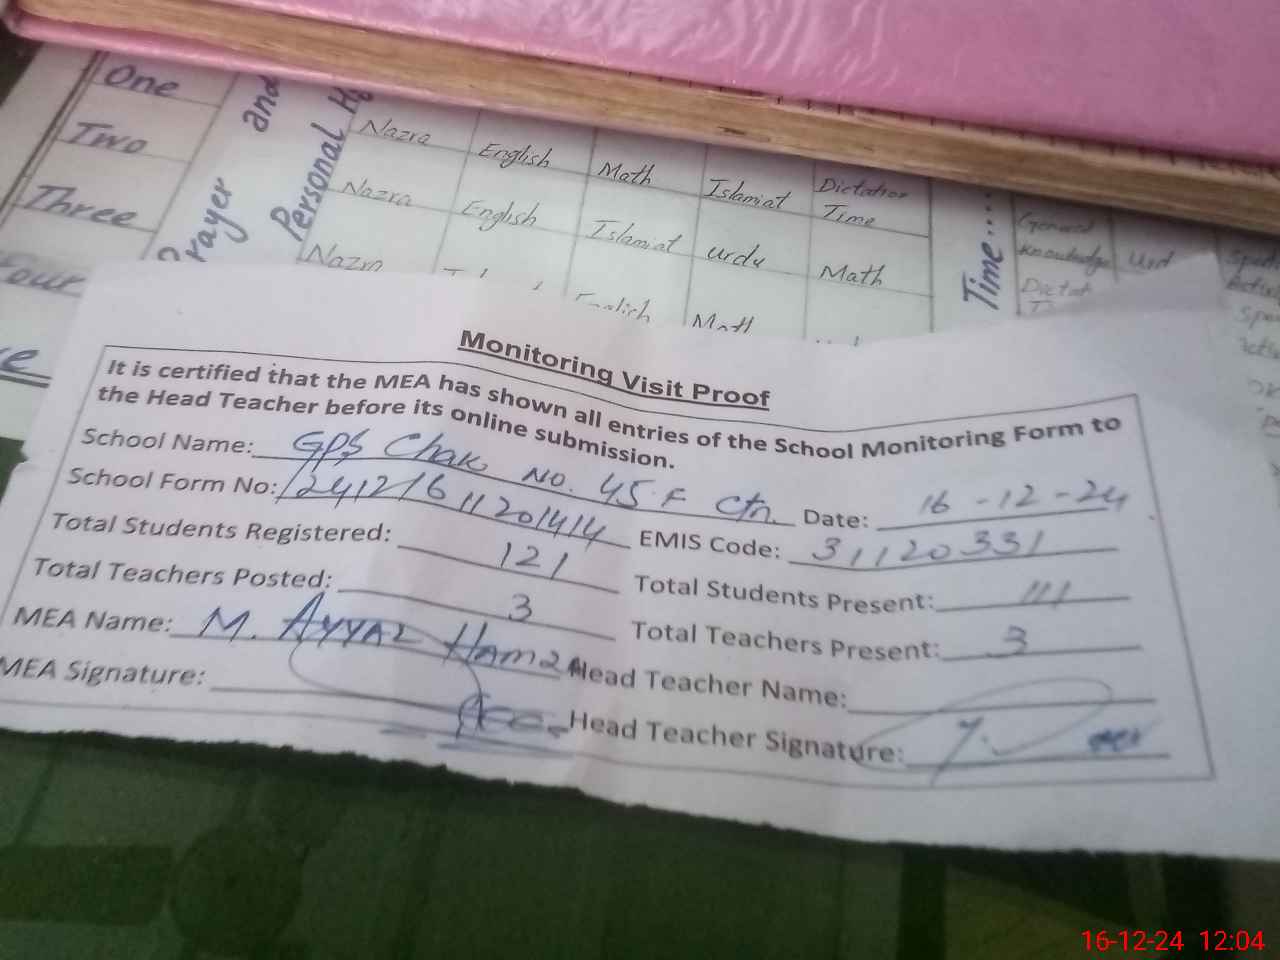 One
Two
Three
Four
Prayer and
Personal
Nazra English Math Islamiat Dictation Time
Nazra English Islamiat urdu Math
Nazra English Math
Time....
General Knowledge Urd
Dictat
Monitoring Visit Proof
It is certified that the MEA has shown all entries of the School Monitoring Form to
the Head Teacher before its online submission.
School Name: GPS Chak No. 45.F Ctn. Date: 16-12-24
School Form No: 241216 11201414 EMIS Code: 31120331
Total Students Registered: 121 Total Students Present: 111
Total Teachers Posted: 3 Total Teachers Present: 3
MEA Name: M. AYYAZ HAMZA Head Teacher Name:
MEA Signature: Head Teacher Signature:
16-12-24 12:04